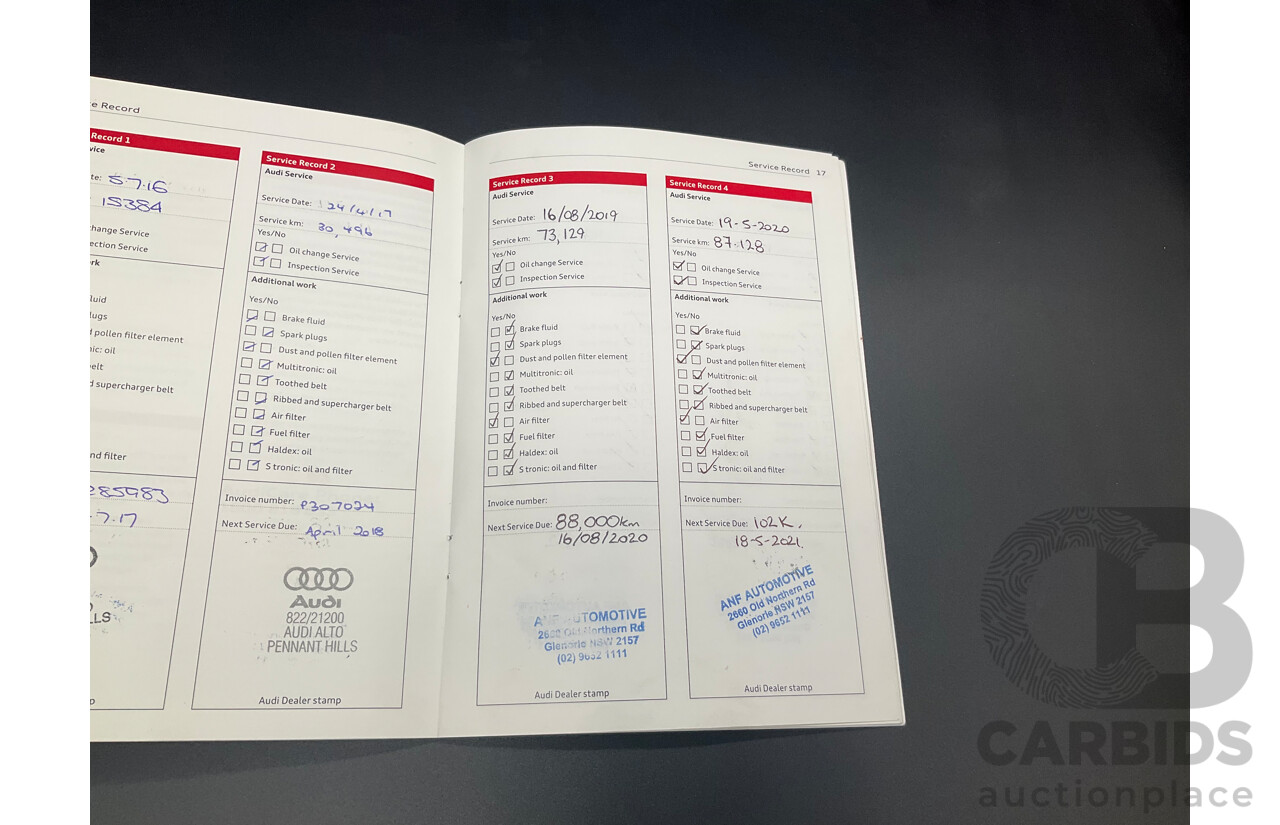 e Record
Record 1
vice
te: 5.7.16
15384
hange Service
ection Service
rk
luid
lugs
pollen filter element
nic: oil
elt
d supercharger belt
nd filter
285983
-7.17
LLS
p
Service Record 2
Audi Service
Service Date: 24/4/17
Service km: 30,496
Yes/No
Oil change Service
Inspection Service
Additional work
Yes/No
Brake fluid
Spark plugs
Dust and pollen filter element
Multitronic: oil
Toothed belt
Ribbed and supercharger belt
Air filter
Fuel filter
Haldex: oil
S tronic: oil and filter
Invoice number: P307024
Next Service Due: April 2018
Audi
822/21200
AUDI ALTO
PENNANT HILLS
Audi Dealer stamp
Service Record 17
Service Record 3
Audi Service
Service Date: 16/08/2019
Service km: 73,129
Yes/No
Oil change Service
Inspection Service
Additional work
Yes/No
Brake fluid
Spark plugs
Dust and pollen filter element
Multitronic: oil
Toothed belt
Ribbed and supercharger belt
Air filter
Fuel filter
Haldex: oil
S tronic: oil and filter
Invoice number:
Next Service Due: 88,000km
16/08/2020
ANF AUTOMOTIVE
2660 Old Northern Rd
Glenorie NSW 2157
(02) 9652 1111
Audi Dealer stamp
Service Record 4
Audi Service
Service Date: 19-5-2020
Service km: 87128
Yes/No
Oil change Service
Inspection Service
Additional work
Yes/No
Brake fluid
Spark plugs
Dust and pollen filter element
Multitronic: oil
Toothed belt
Ribbed and supercharger belt
Air filter
Fuel filter
Haldex: oil
S tronic: oil and filter
Invoice number:
Next Service Due: 102K.
18-5-2021.
ANF AUTOMOTIVE
2660 Old Northern Rd
Glenorie NSW 2157
(02) 9652 1111
Audi Dealer stamp
CARBIDS
auctionplace